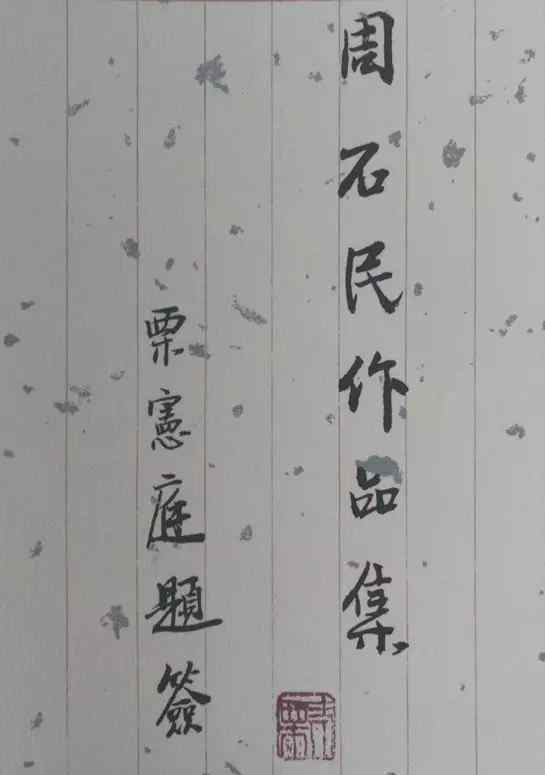 周石民作品集
栗憲庭題簽